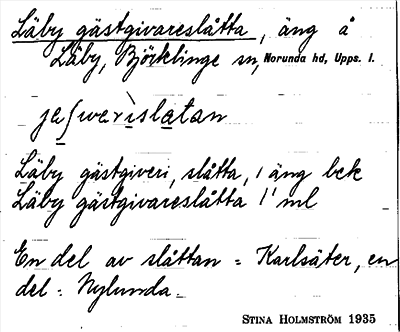 Läby gästgivareslåtta, äng å
Läby, Björklinge sn, Norunda hd, Upps. l.
jaſwerìslatan
Läby gästgiveri, slåtta, 1 äng bek
Läby gästgivareslåtta 1' ml
En del av slåttan = Karlsäter, en
del = Nylunda.
STINA HOLMSTRÖM 1935